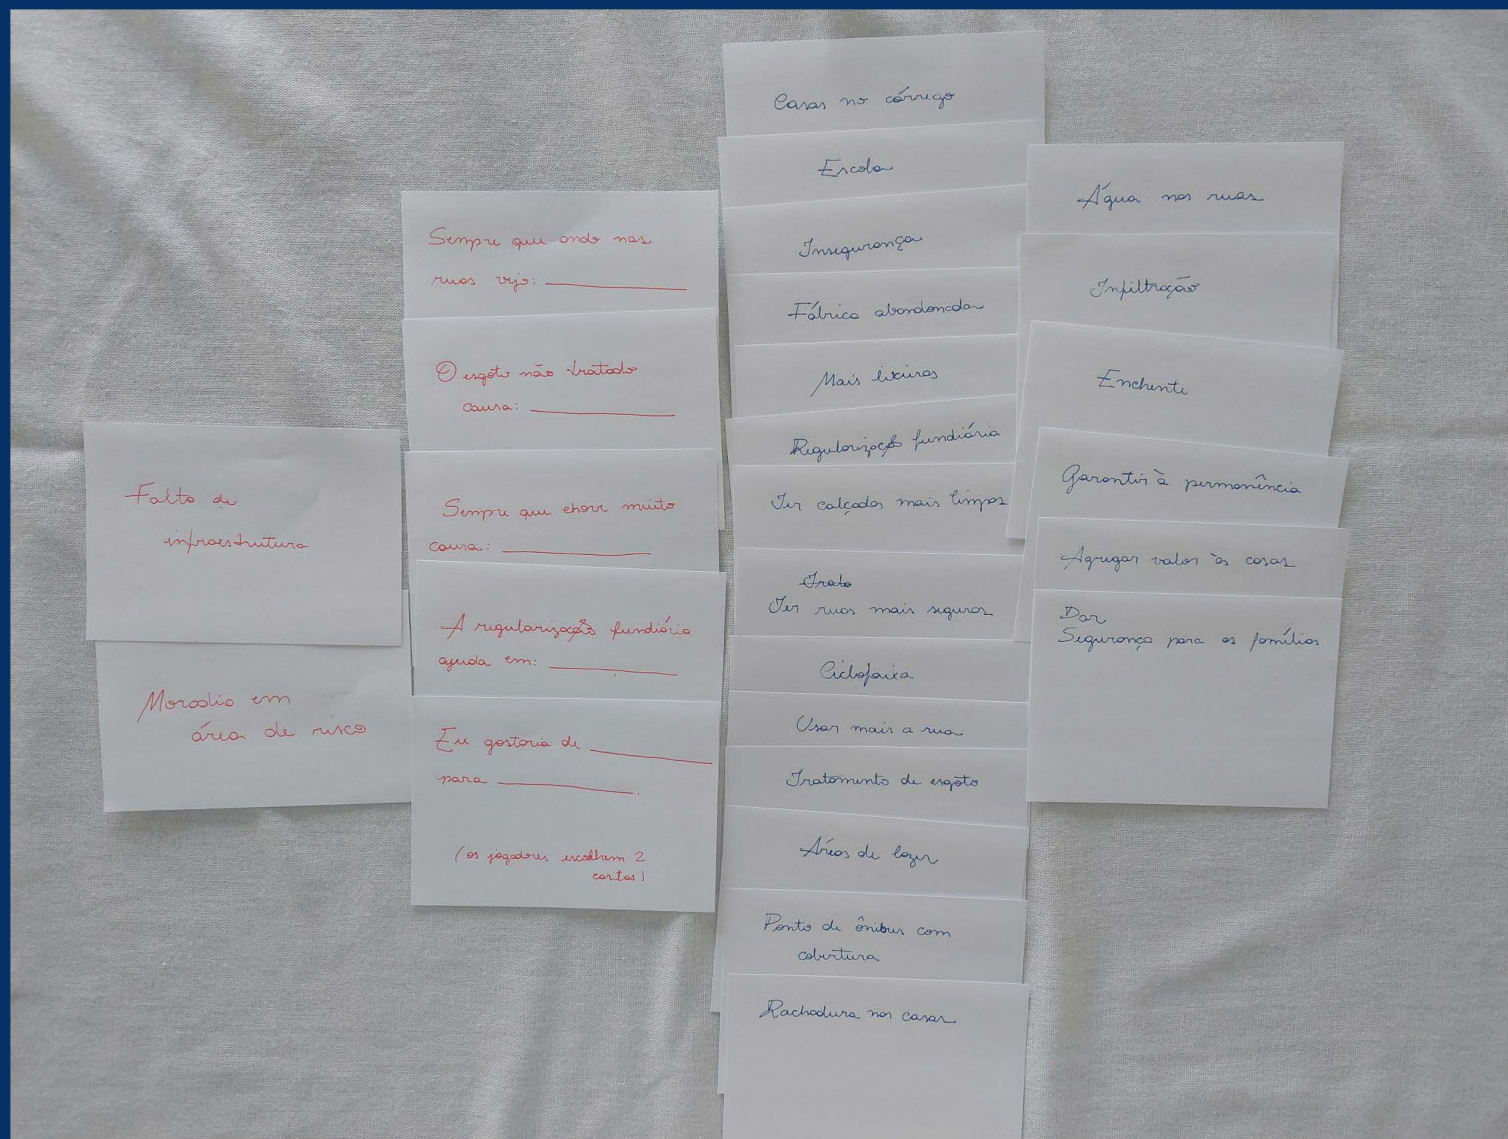 Falta de
infraestrutura
Moradia em
área de risco
Sempre que ando nas
ruas vejo: ___________
O esgôto não tratado
causa: ___________
Sempre que chove muito
causa: ___________
A regularização fundiária
ajuda em: ___________
Eu gostaria de ___________
para ___________.
(os jogadores escolhem 2
cartas)
Casas no córrego
Escola
Insegurança
Fábrica abandonada
Mais lixeiras
Regularização fundiária
Ter calçadas mais limpas
Trato
Ter ruas mais seguras
Ciclofaixa
Usar mais a rua
Tratamento de esgôto
Áreas de lazer
Ponto de ônibus com
cobertura
Rachadura nas casas
Água nas ruas
Infiltração
Enchente
Garantir à permanência
Agregar valor às casas
Dar
Segurança para as famílias